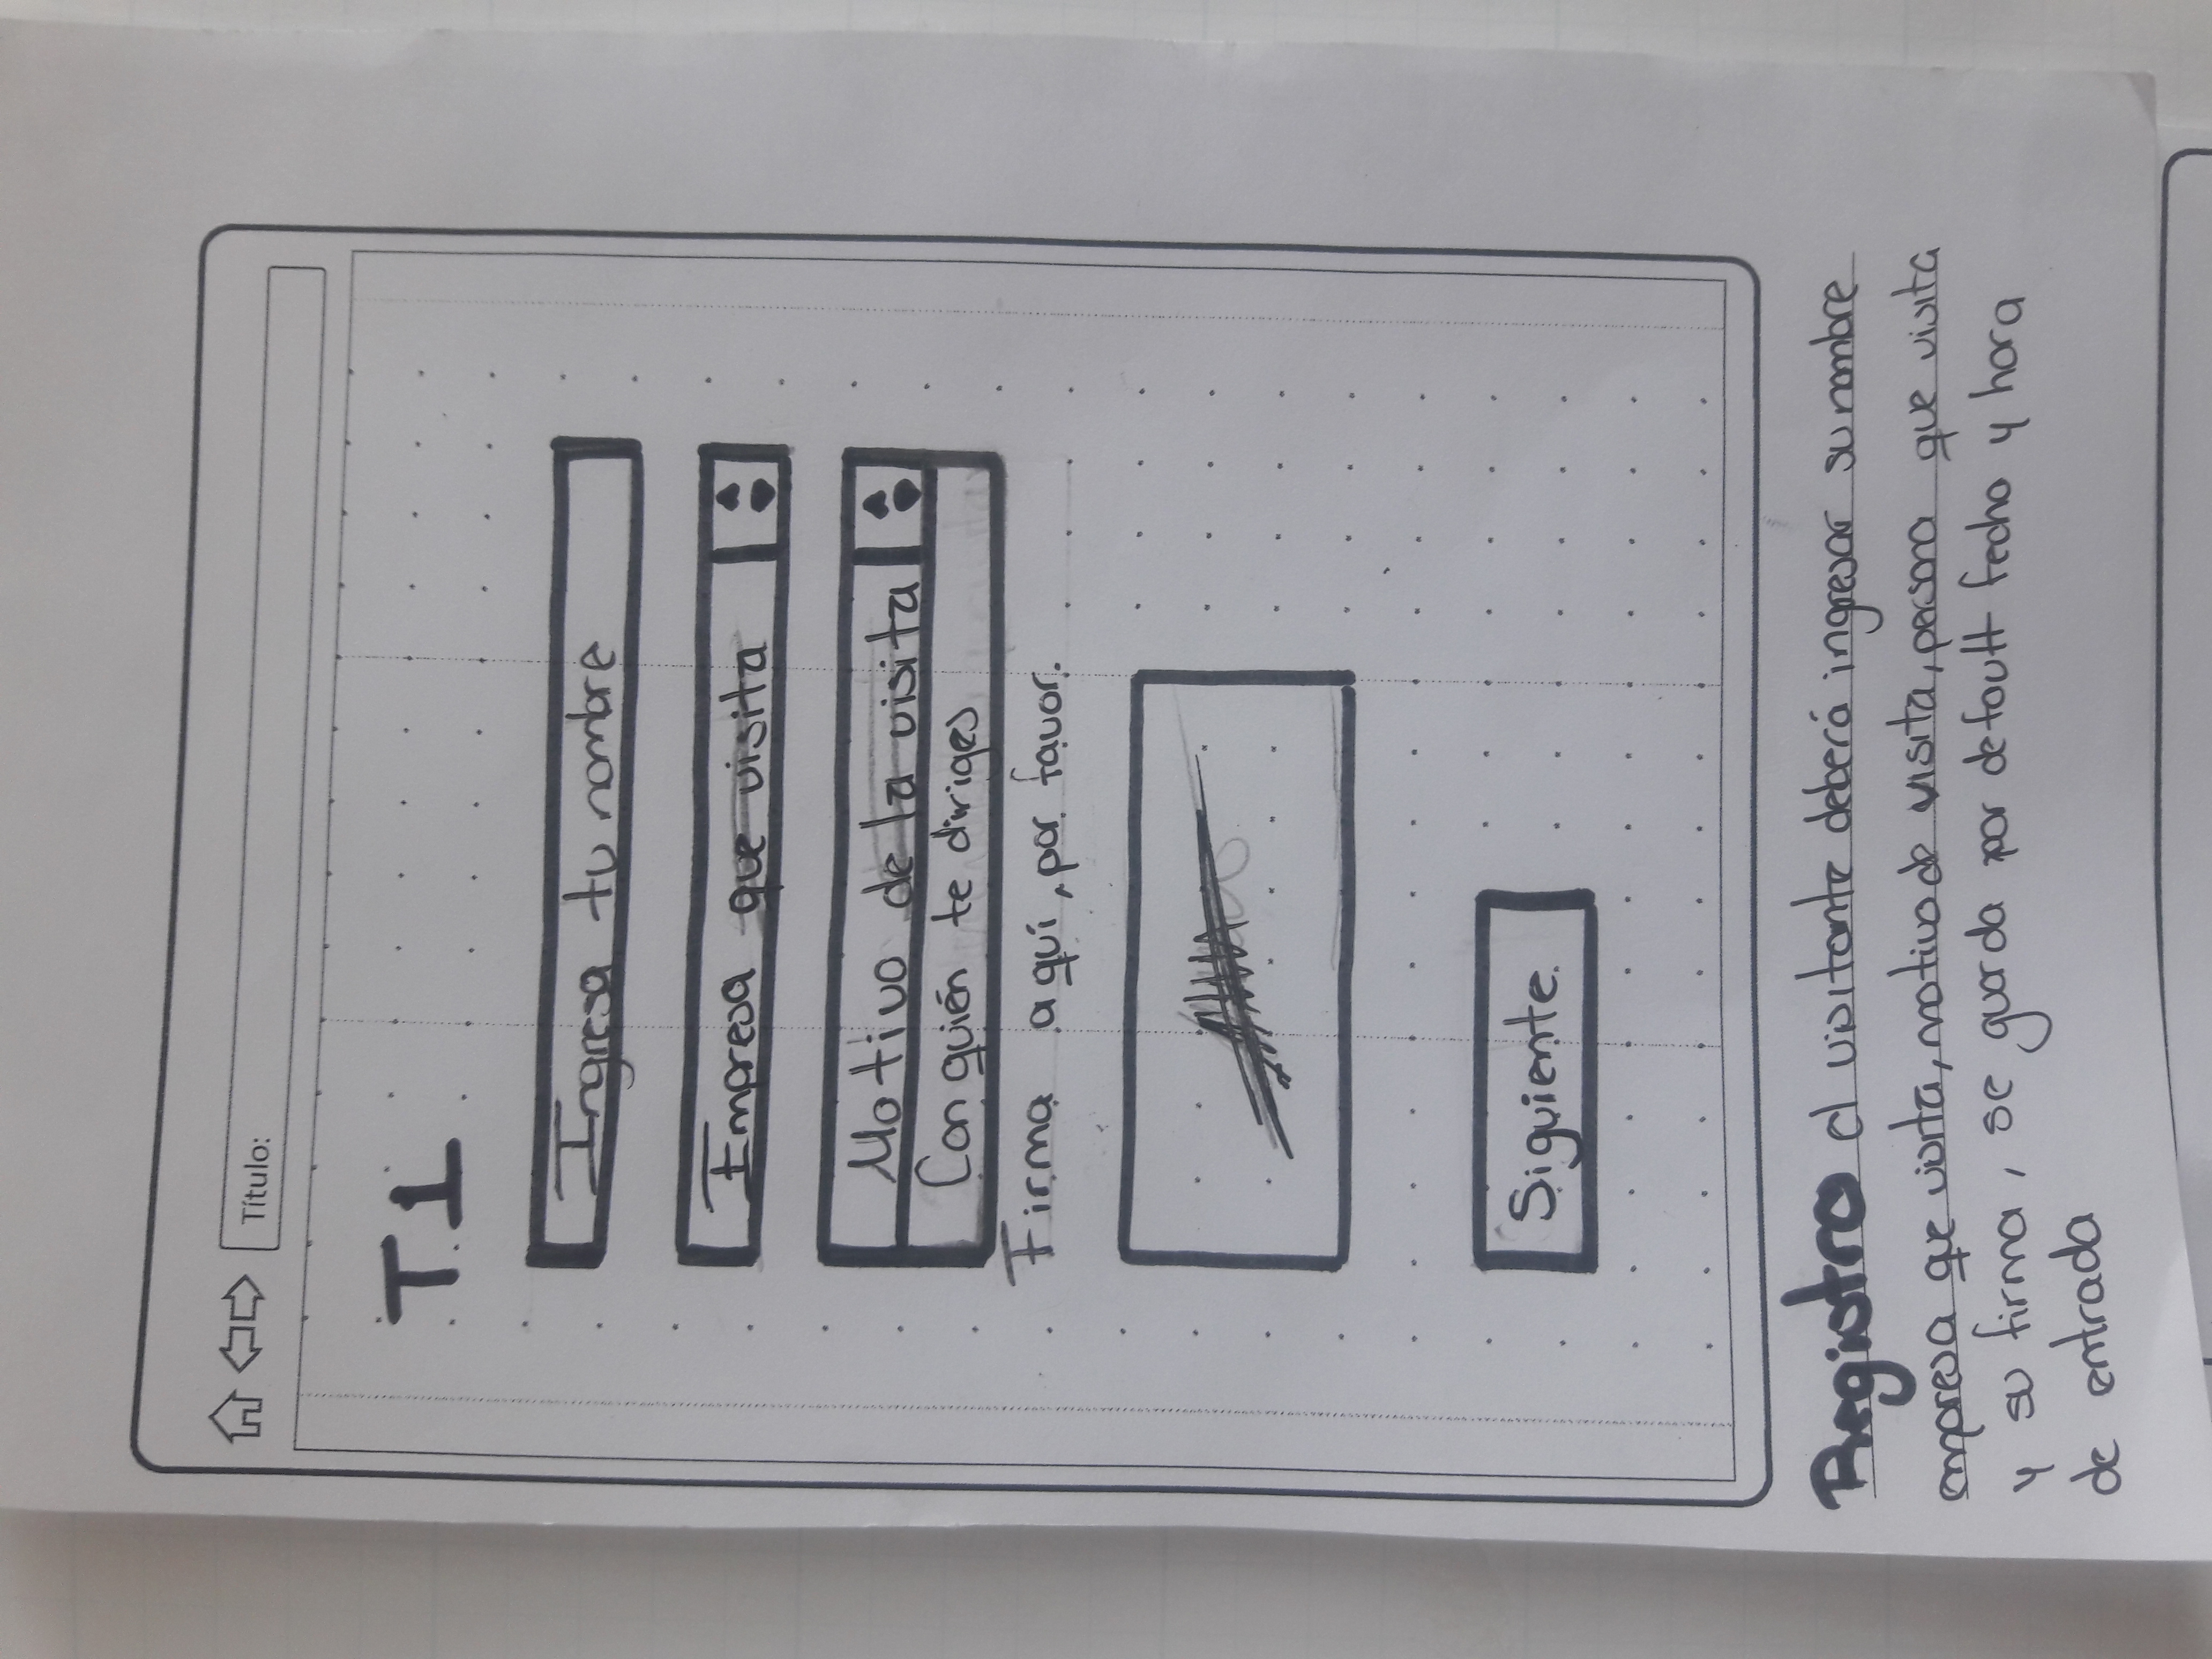 Título:
T1
Ingresa tu nombre
Empresa que visita
Motivo de la visita
Con quién te diriges
Firma aquí, por favor.
Siguiente.
Registro el visitante deberá ingresar su nombre
empresa que visita, motivo de visita, persona que visita
y su firma, se guarda por default fecha y hora
de entrada